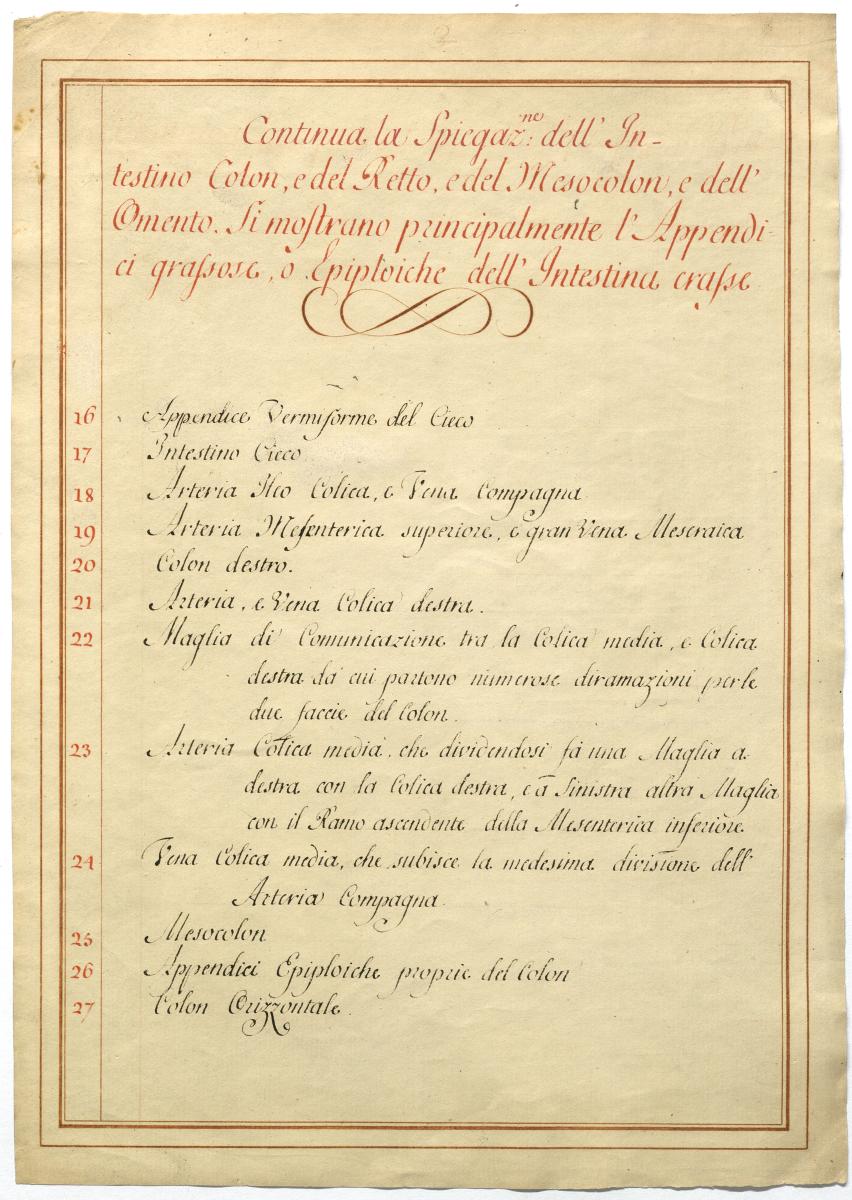 2
Continua la Spiegaz.ne dell' In-
testino Colon, e del Retto, e del Mesocolon, e dell'
Omento. Si mostrano principalmente l'Appendi-
ci grassose, o Epiploiche dell'Intestina crasse
16 Appendice Vermiforme del Cieco
17 Intestino Cieco
18 Arteria Ileo Colica, e Vena Compagna
19 Arteria Mesenterica superiore, e gran Vena Meseraica
20 Colon destro.
21 Arteria, e Vena Colica destra.
22 Maglia di Comunicazione tra la Colica media, e Colica
destra da cui partono numerose diramazioni per le
due faccie del Colon.
23 Arteria Colica media, che dividendosi fà una Maglia a
destra con la Colica destra, e à Sinistra altra Maglia
con il Ramo ascendente della Mesenterica inferiore
24 Vena Colica media, che subisce la medesima divisione dell'
Arteria Compagna
25 Mesocolon
26 Appendici Epiploiche proprie del Colon
27 Colon Orizzontale.